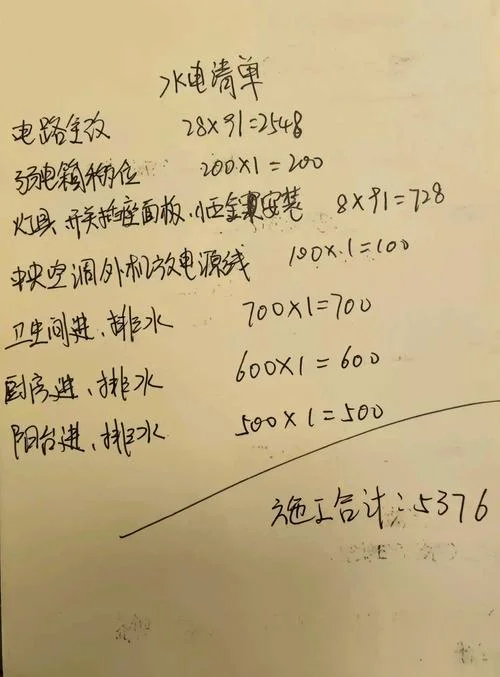 水电清单
电路全改 28×91=2548
弱电箱移位 200×1=200
灯具、开关插座面板、小五金安装 8×91=728
中央空调外机放电源线 100×1=100
卫生间进、排水 700×1=700
厨房进、排水 600×1=600
阳台进、排水 500×1=500
施工合计:5376